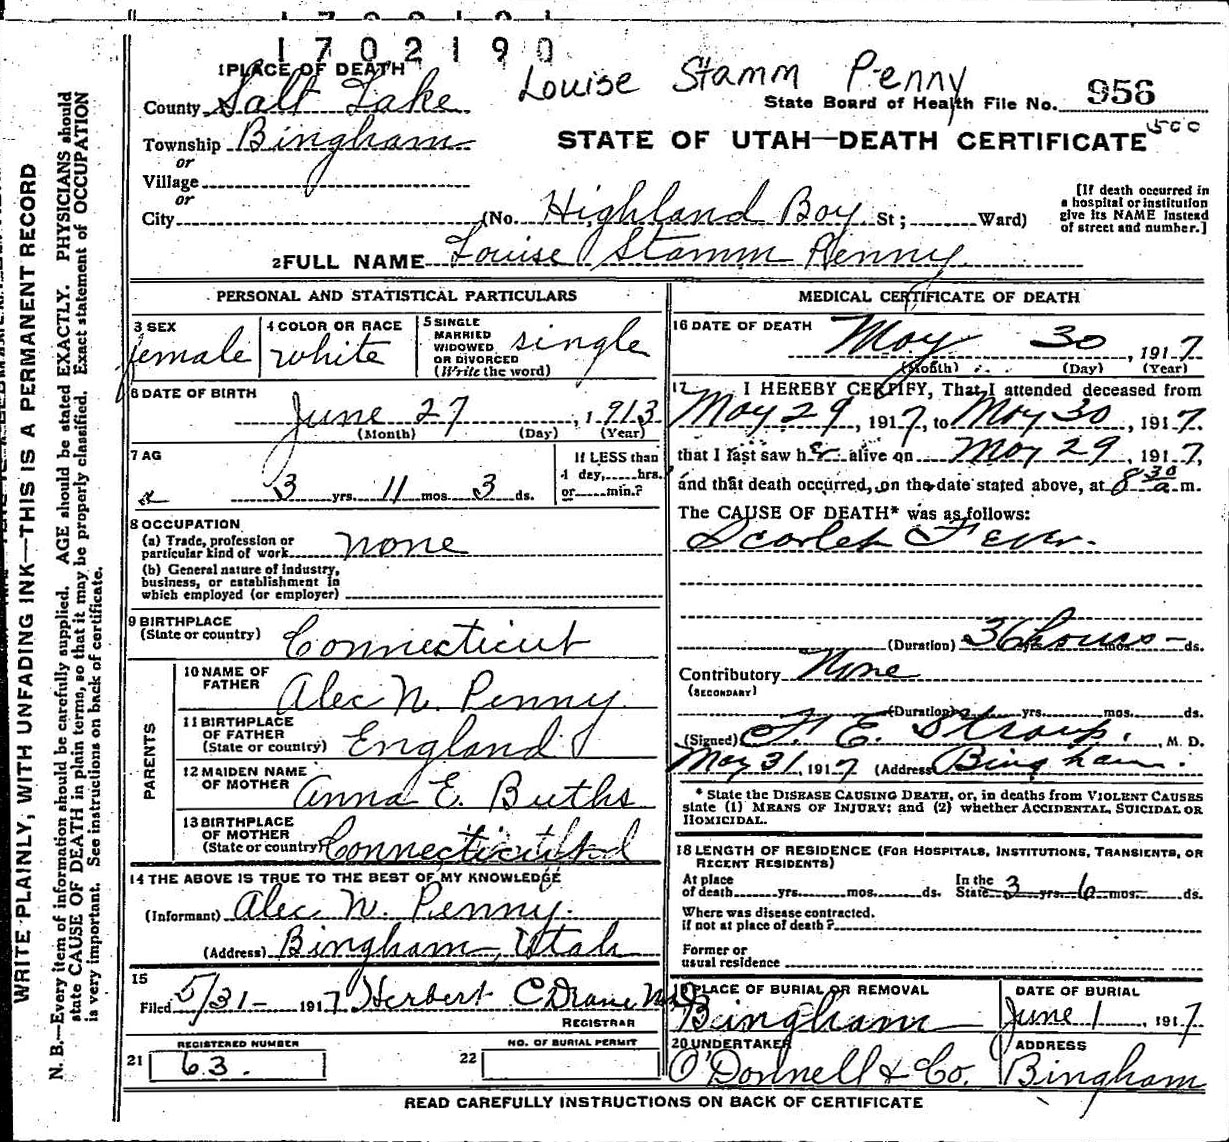 1702190
Louise Stamm Penny
1 PLACE OF DEATH
County Salt Lake
State Board of Health File No. 956
Township Bingham
STATE OF UTAH—DEATH CERTIFICATE
500
or
Village
or
City (No. Highland Boy St; Ward)
[If death occurred in a hospital or institution give its NAME instead of street and number.]
2 FULL NAME Louise Stamm Penny
PERSONAL AND STATISTICAL PARTICULARS
3 SEX female
4 COLOR OR RACE white
5 SINGLE MARRIED WIDOWED OR DIVORCED (Write the word) single
6 DATE OF BIRTH
June 27, 1913
(Month) (Day) (Year)
7 AG
3 yrs. 11 mos. 3 ds.
If LESS than 1 day, hrs. or min.?
8 OCCUPATION
(a) Trade, profession or particular kind of work none
(b) General nature of industry, business, or establishment in which employed (or employer)
9 BIRTHPLACE (State or country) Connecticut
PARENTS
10 NAME OF FATHER Alec N. Penny
11 BIRTHPLACE OF FATHER (State or country) England
12 MAIDEN NAME OF MOTHER Anna E. Buths
13 BIRTHPLACE OF MOTHER (State or country) Connecticut
14 THE ABOVE IS TRUE TO THE BEST OF MY KNOWLEDGE
(Informant) Alec W. Penny.
(Address) Bingham, Utah
15
Filed 5/31- 1917 Herbert C
REGISTRAR
21 REGISTERED NUMBER 63.
22 NO. OF BURIAL PERMIT
MEDICAL CERTIFICATE OF DEATH
16 DATE OF DEATH
May 30, 1917
(Month) (Day) (Year)
17 I HEREBY CERTIFY, That I attended deceased from
May 29, 1917, to May 30, 1917.
that I last saw her alive on May 29, 1917,
and that death occurred, on the date stated above, at 8 30 a m.
The CAUSE OF DEATH* was as follows:
Scarlet Fever.
(Duration) 36 hours mos. ds.
Contributory None
(SECONDARY)
(Duration) yrs. mos. ds.
(Signed) F. E. Straup, M. D.
May 31, 1917 (Address) Bingham.
* State the DISEASE CAUSING DEATH, or, in deaths from VIOLENT CAUSES
state (1) MEANS OF INJURY; and (2) whether ACCIDENTAL, SUICIDAL OR
HOMICIDAL.
18 LENGTH OF RESIDENCE (FOR HOSPITALS, INSTITUTIONS, TRANSIENTS, OR
RECENT RESIDENTS)
At place of death yrs. mos. ds. In the State 3 yrs. 6 mos. ds.
Where was disease contracted.
if not at place of death?
Former or
usual residence
19 PLACE OF BURIAL OR REMOVAL Bingham
DATE OF BURIAL June 1, 1917
20 UNDERTAKER O'Donnell & Co.
ADDRESS Bingham
READ CAREFULLY INSTRUCTIONS ON BACK OF CERTIFICATE
WRITE PLAINLY, WITH UNFADING INK—THIS IS A PERMANENT RECORD
N. B.—Every item of information should be carefully supplied. AGE should be stated EXACTLY. PHYSICIANS should
state CAUSE OF DEATH in plain terms, so that it may be properly classified. Exact statement of OCCUPATION
is very important. See instructions on back of certificate.